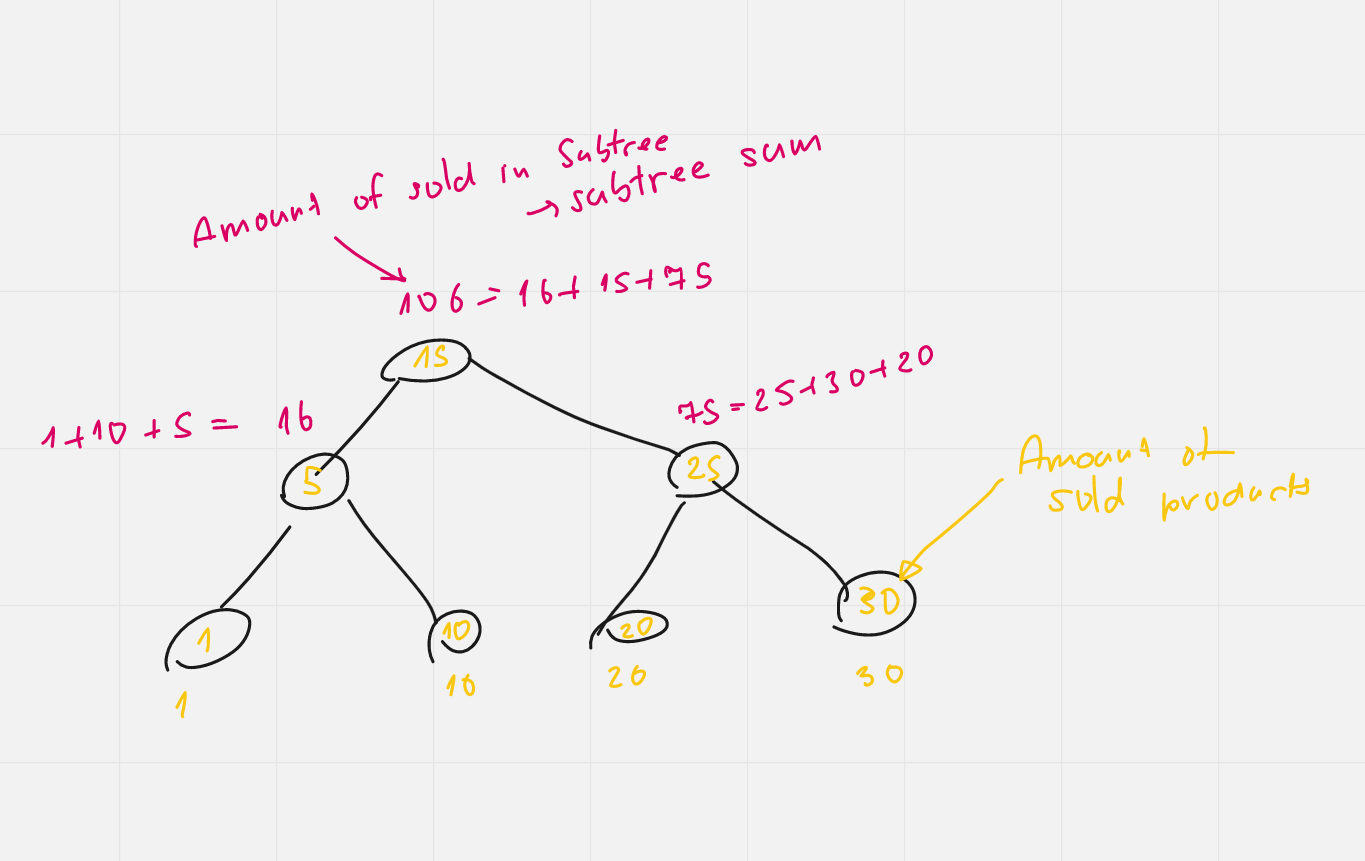 Amount of sold in Subtree
→ subtree sum
106 = 16+15+75
15
75 = 25+30+20
1+10+5 = 16
5
25
Amount of
sold products
1
10
20
30
1
10
20
30